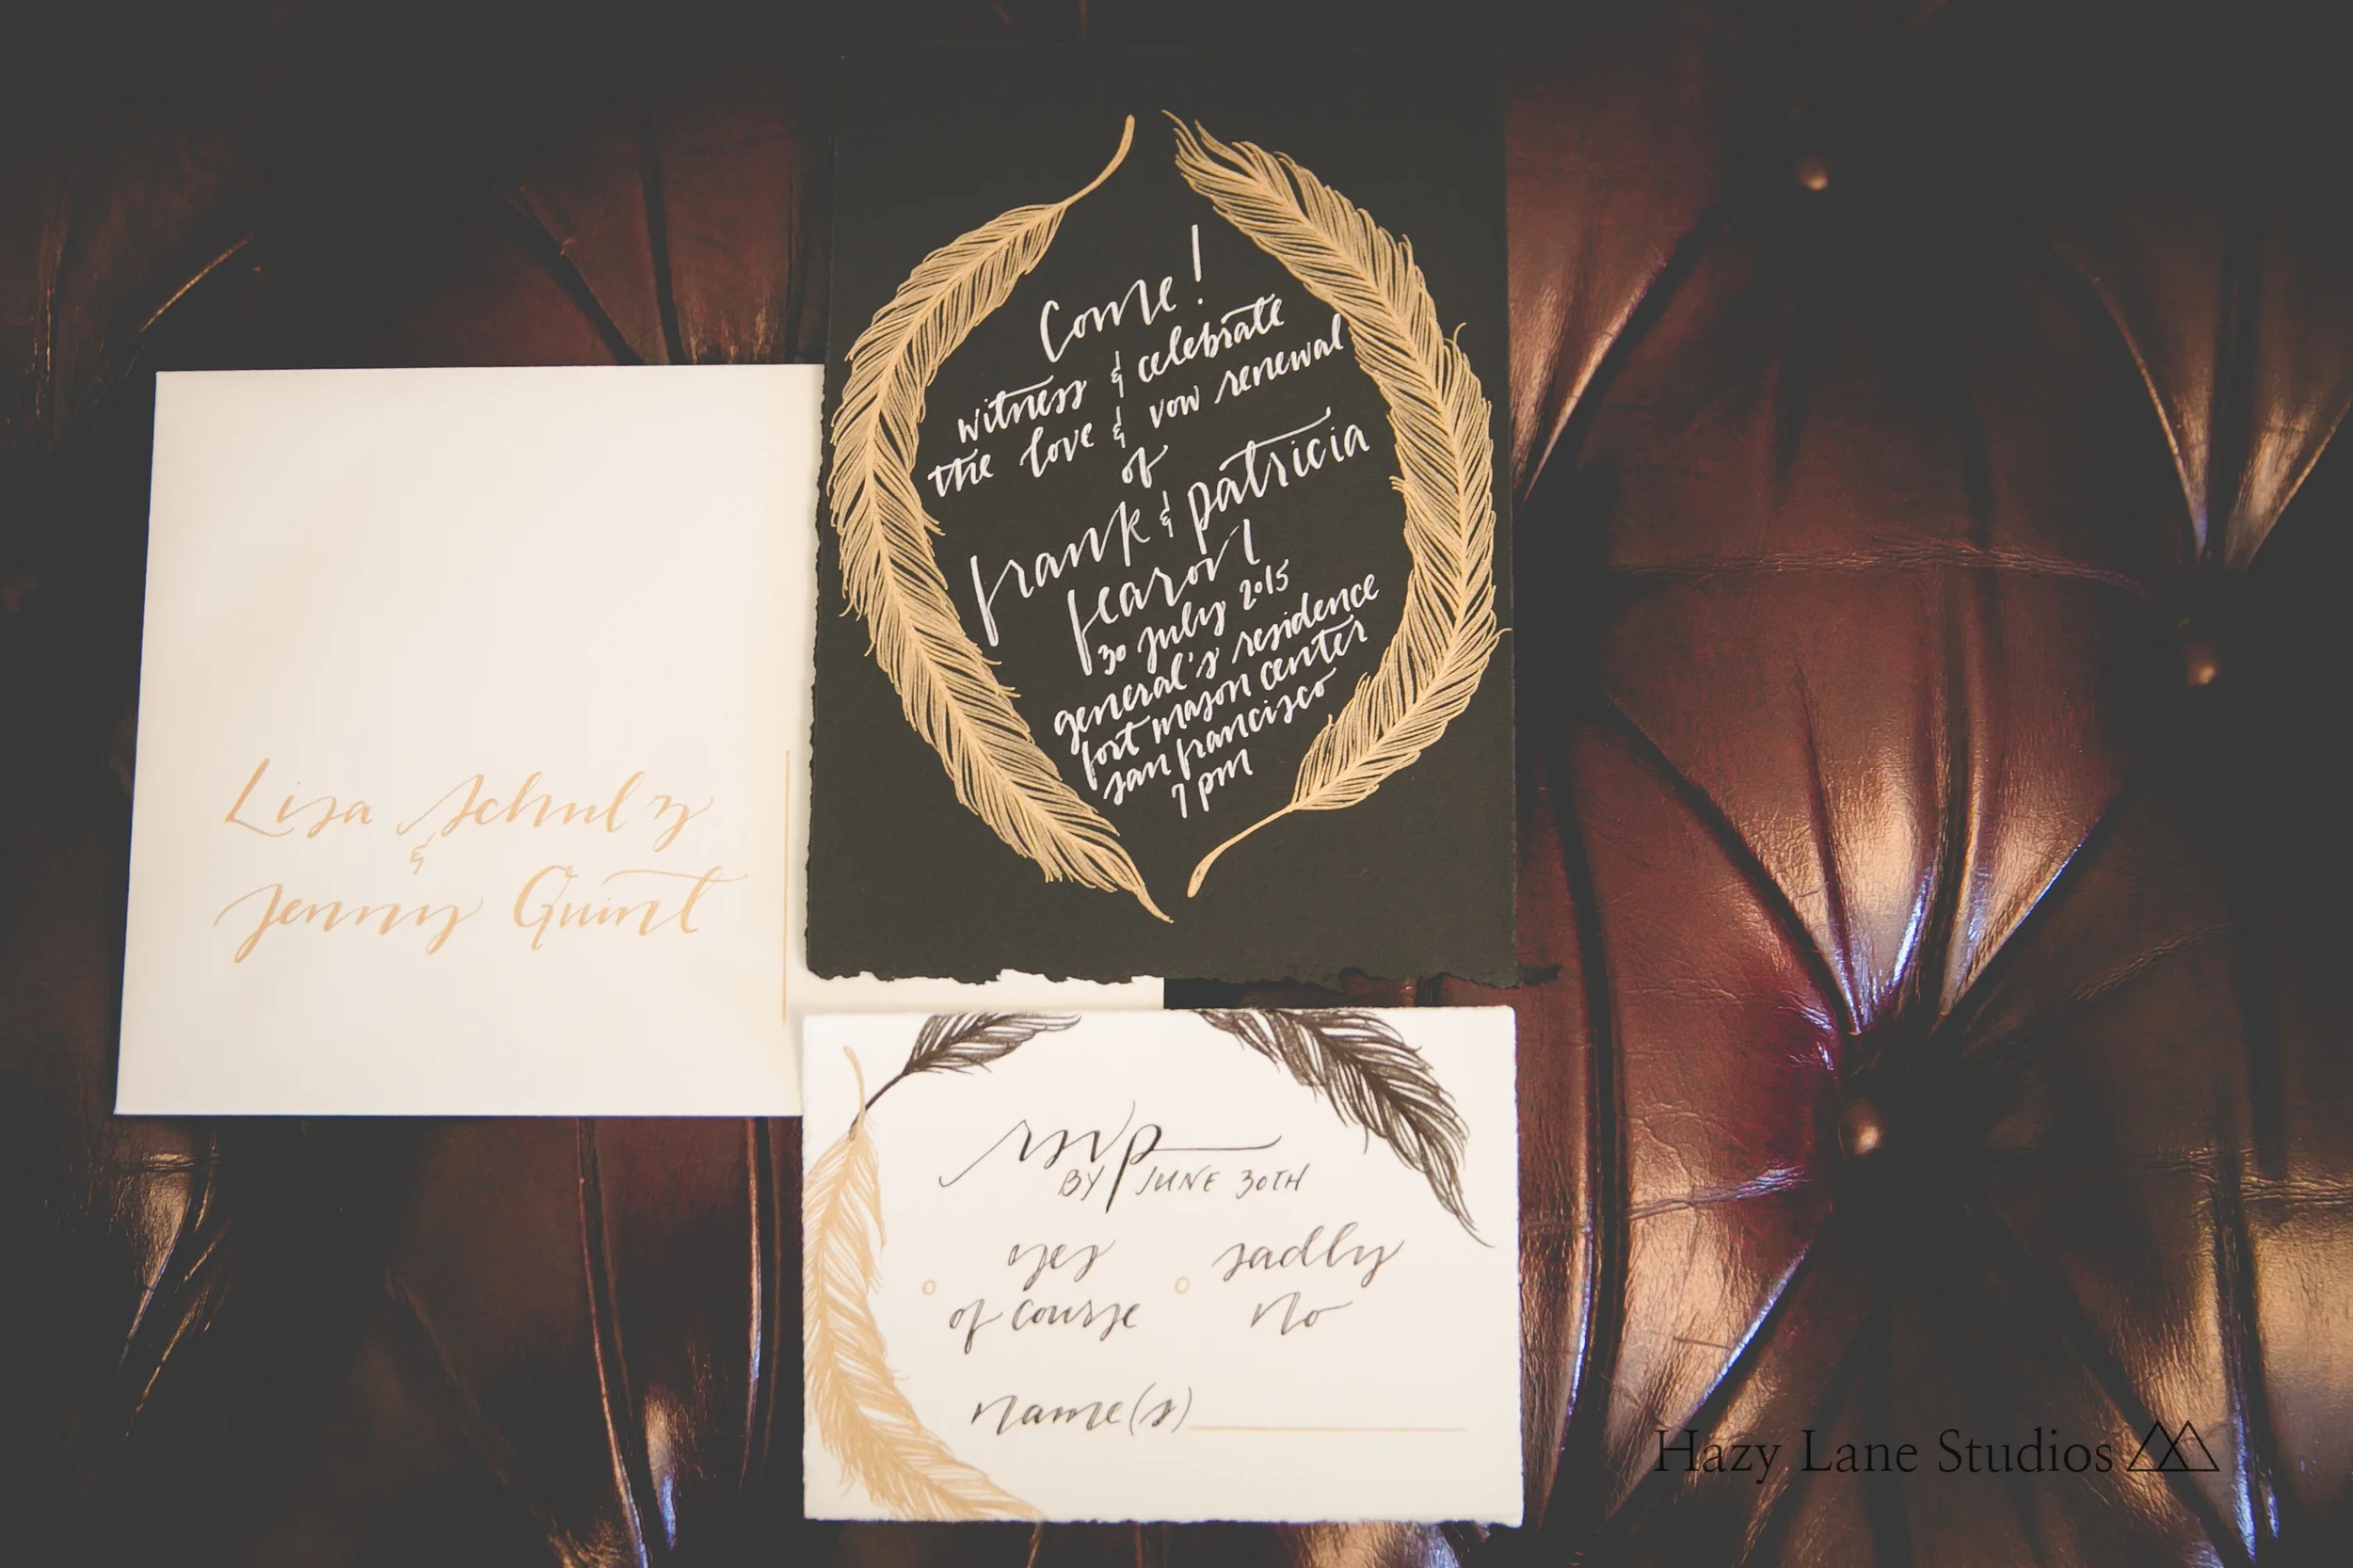 Lisa Schulz
&
Jenny Quint
Come!
witness & celebrate
the love & vow renewal
of
frank & patricia
fearon
30 july 2015
general's residence
fort mason center
san francisco
7 pm
rsvp
BY JUNE 30TH
yes
of course
sadly
no
name(s)
Hazy Lane Studios